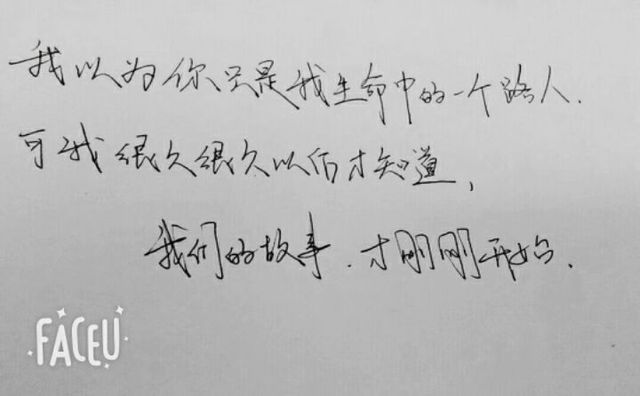 我以为你只是我生命中的一个路人.
可我很久很久以后才知道,
我们的故事.才刚刚开始.
FACEU